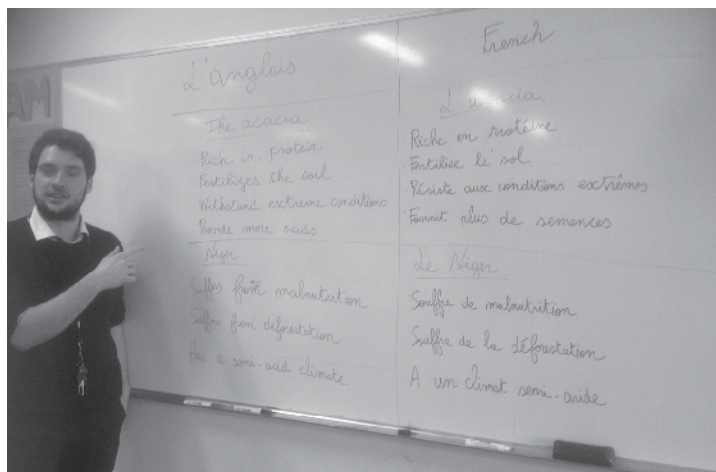 AM
L'anglais
The acacia
Rich in protein
Fertilizes the soil
Withstand extreme conditions
Provide more seeds
Niger
Suffers from malnutrition
Suffers from deforestation
Has a semi-arid climate
French
L'acacia
Riche en protéine
Fertilise le sol
Résiste aux conditions exctrêmes
Fournit plus de semences
Le Niger
Souffre de malnutrition
Souffre de la déforestation
A un climat semi-aride